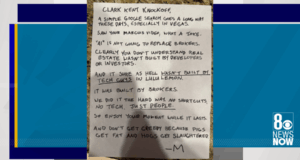 CLARK KENT KNOCKOFF,
A SIMPLE GOOGLE SEARCH GOES A LONG WAY
THESE DAYS, ESPECIALLY IN VEGAS.
SAW YOUR MARCHING VIDEO, WHAT A JOKE.
"AI" IS NOT GOING TO REPLACE BROKERS.
CLEARLY YOU DON'T UNDERSTAND REAL
ESTATE WASN'T BUILT BY DEVELOPERS
OR INVESTORS.
AND IT SURE AS HELL WASN'T BUILT BY
TECH GUYS IN LULULEMON.
IT WAS BUILT BY BROKERS.
WE DID IT THE HARD WAY. NO SHORTCUTS,
NO TECH. JUST PEOPLE.
SO ENJOY YOUR MOMENT WHILE IT LASTS
AND DON'T GET GREEDY BECAUSE PIGS
GET FAT AND HOGS GET SLAUGHTERED
-M
8
NEWS
NOW